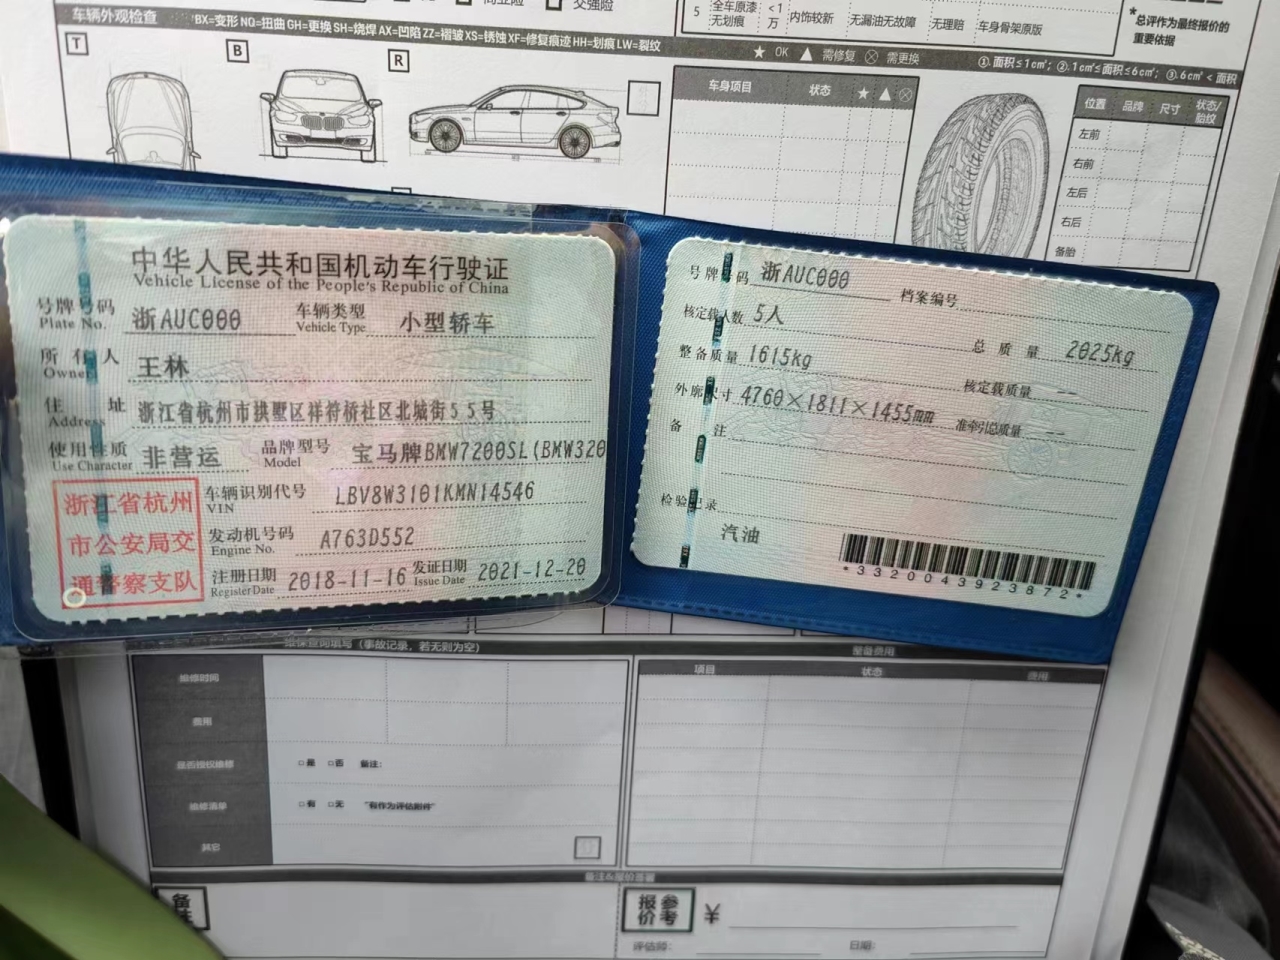 商业险
交强险
5 全车原漆无划痕 <1万 内饰较新 无漏油无故障 无理赔 车身骨架原版
*总评作为最终报价的重要依据
车辆外观检查 BX=变形 NQ=扭曲 GH=更换 SH=烧焊 AX=凹陷 ZZ=褶皱 XS=锈蚀 XF=修复痕迹 HH=划痕 LW=裂纹
★ OK ▲ 需修复 ⊗ 需更换 ①.面积≤1cm²; ②.1cm²≤面积≤6cm²; ③.6cm²<面积
T
B
R
车身项目 状态 ★ ▲ ⊗
位置 品牌 尺寸 状态/胎纹
左前
右前
左后
右后
备胎
中华人民共和国机动车行驶证
Vehicle License of the People's Republic of China
号牌号码 浙AUC000 车辆类型 小型轿车
Plate No. Vehicle Type
所有人 王林
Owner
住址 浙江省杭州市拱墅区祥符桥社区北城街55号
Address
使用性质 非营运 品牌型号 宝马牌BMW7200SL(BMW320
Use Character Model
浙江省杭州市公安局交通警察支队
车辆识别代号 LBV8W3101KMN14546
VIN
发动机号码 A763D552
Engine No.
注册日期 2018-11-16 发证日期 2021-12-20
Register Date Issue Date
号牌号码 浙AUC000 档案编号
核定载人数 5人 总质量 2025kg
整备质量 1615kg 核定载质量 --
外廓尺寸 4760×1811×1455mm 准牵引总质量 --
备注
检验记录
汽油
*3320043923872*
维保查询填写(事故记录,若无则为空)
整备费用
维修时间
费用
是否授权维修 □是 □否 备注:
维修清单 □有 □无 "有作为评估附件"
其它
项目 状态 费用
备注&报价签署
备注
参考报价 ¥
评估师: 日期: